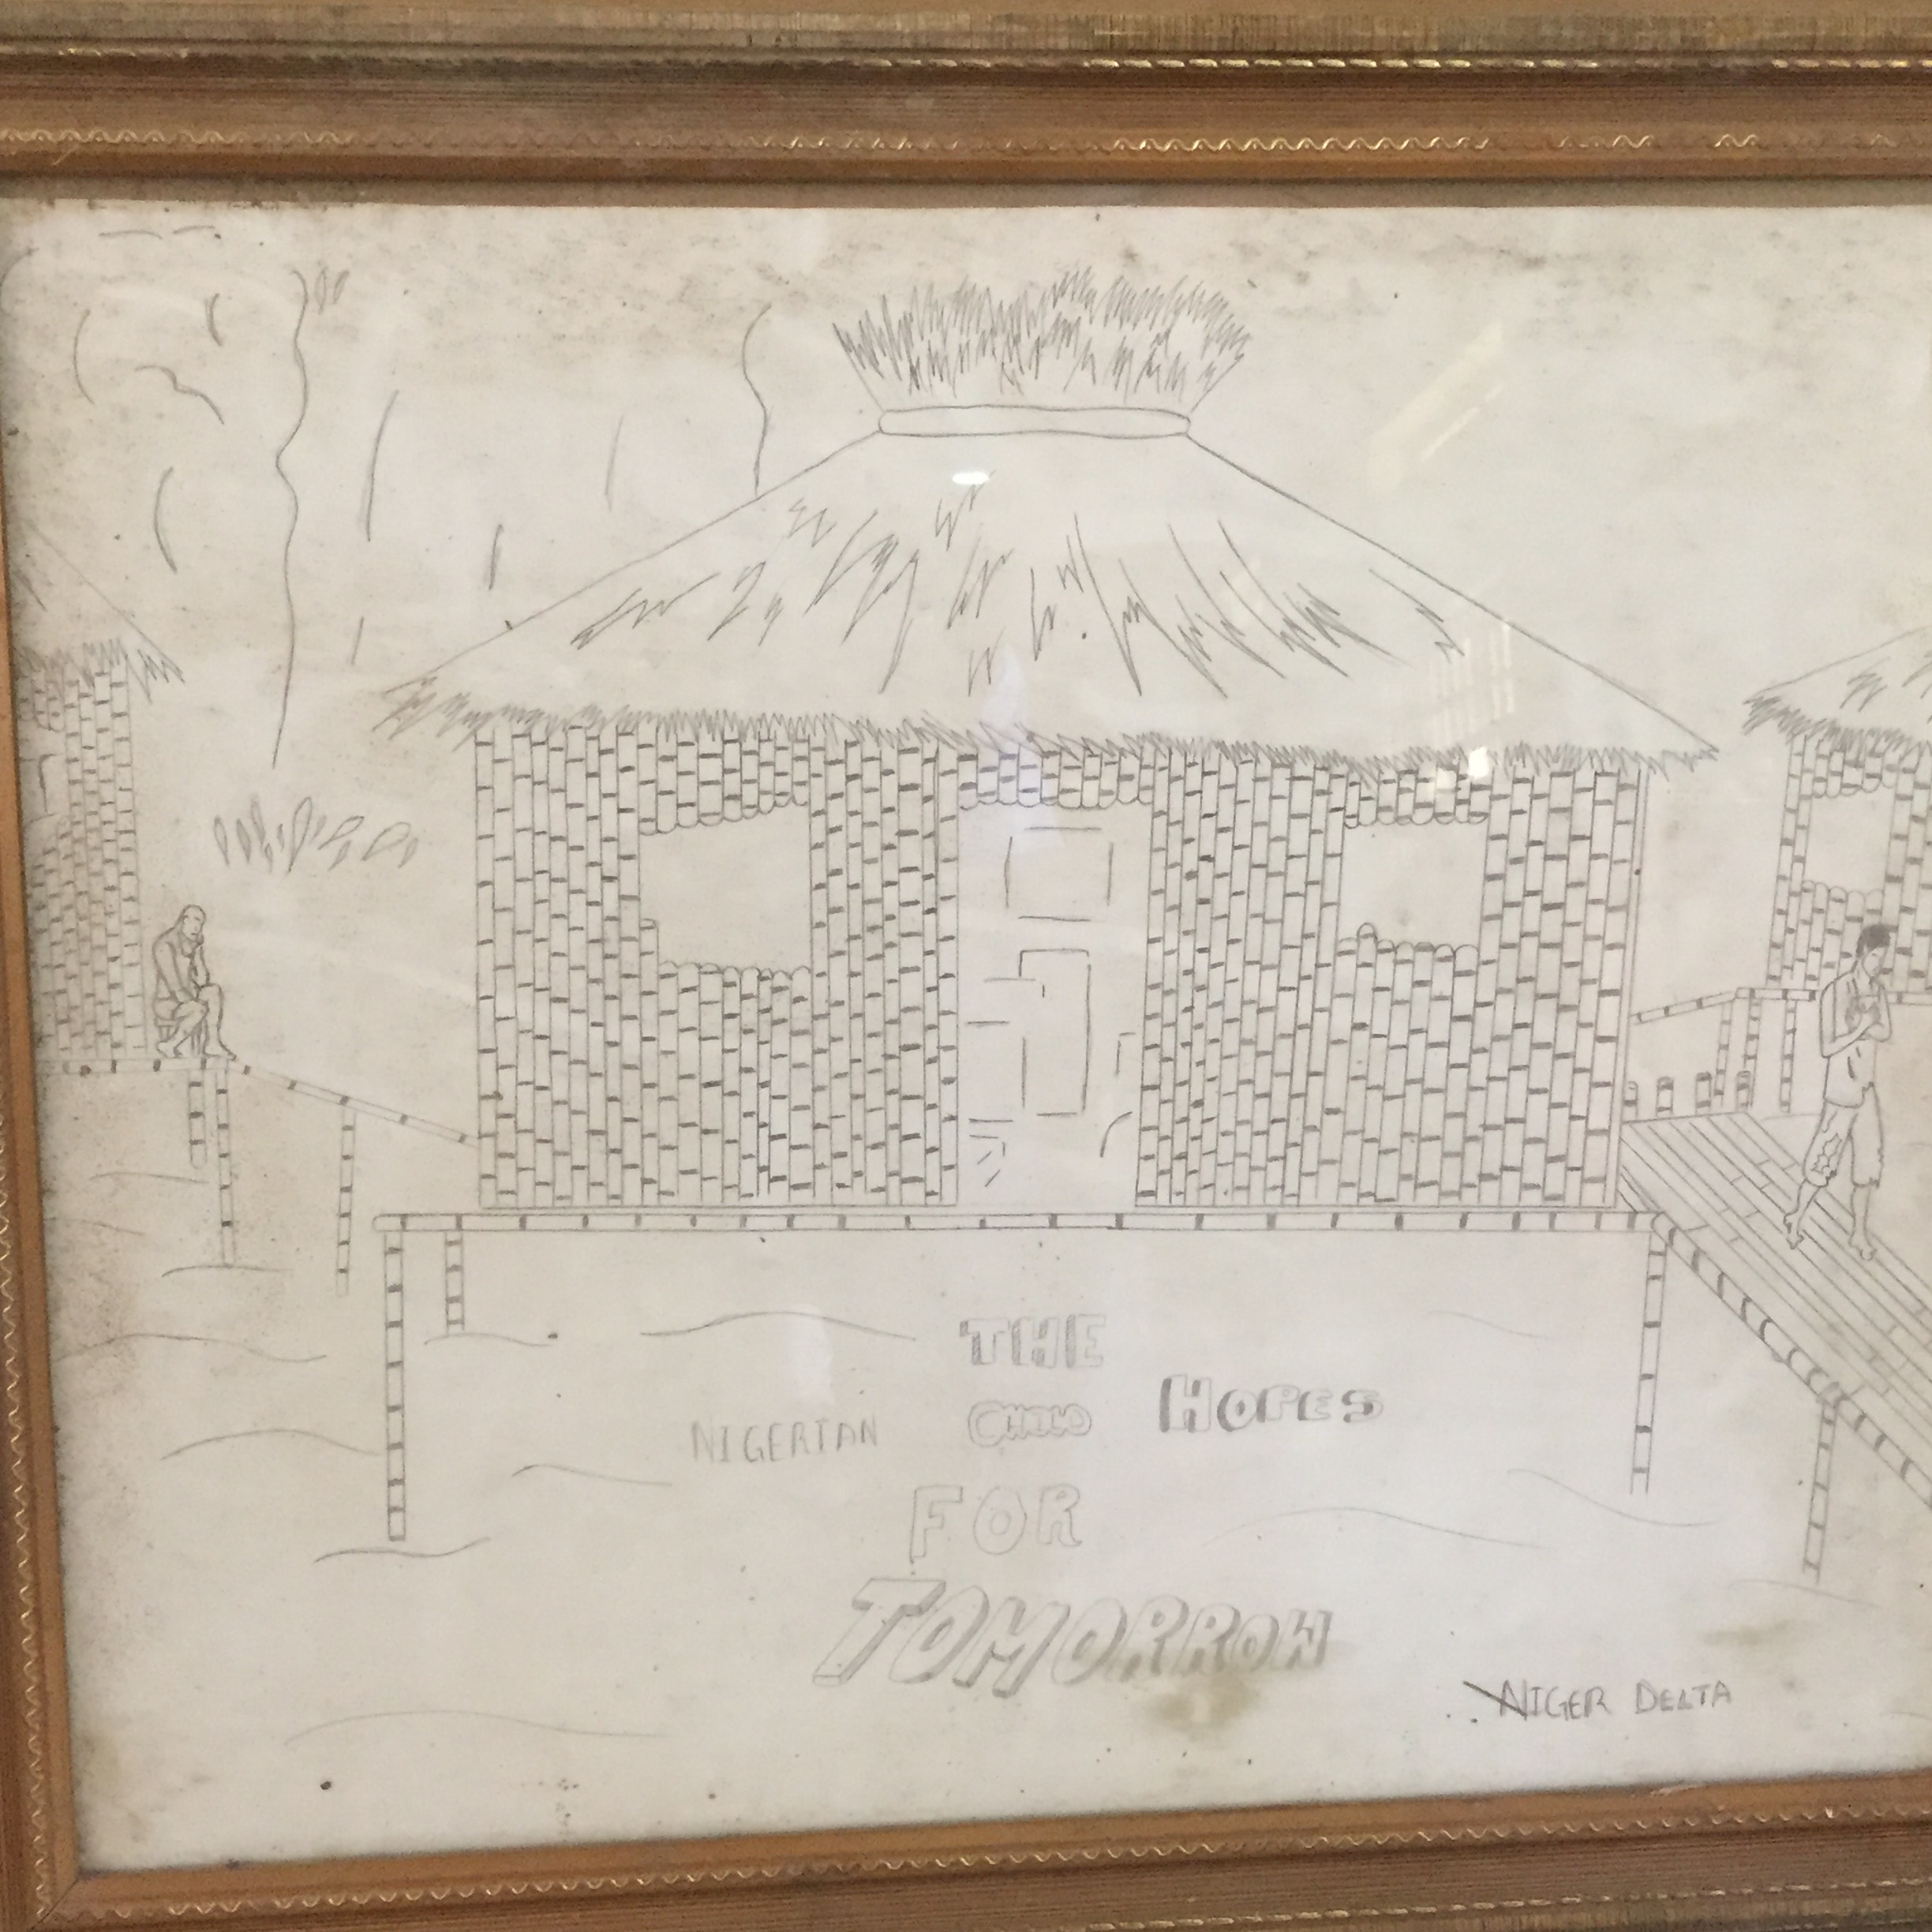 THE
NIGERIAN CHILD HOPES
FOR
TOMORROW
NIGER DELTA